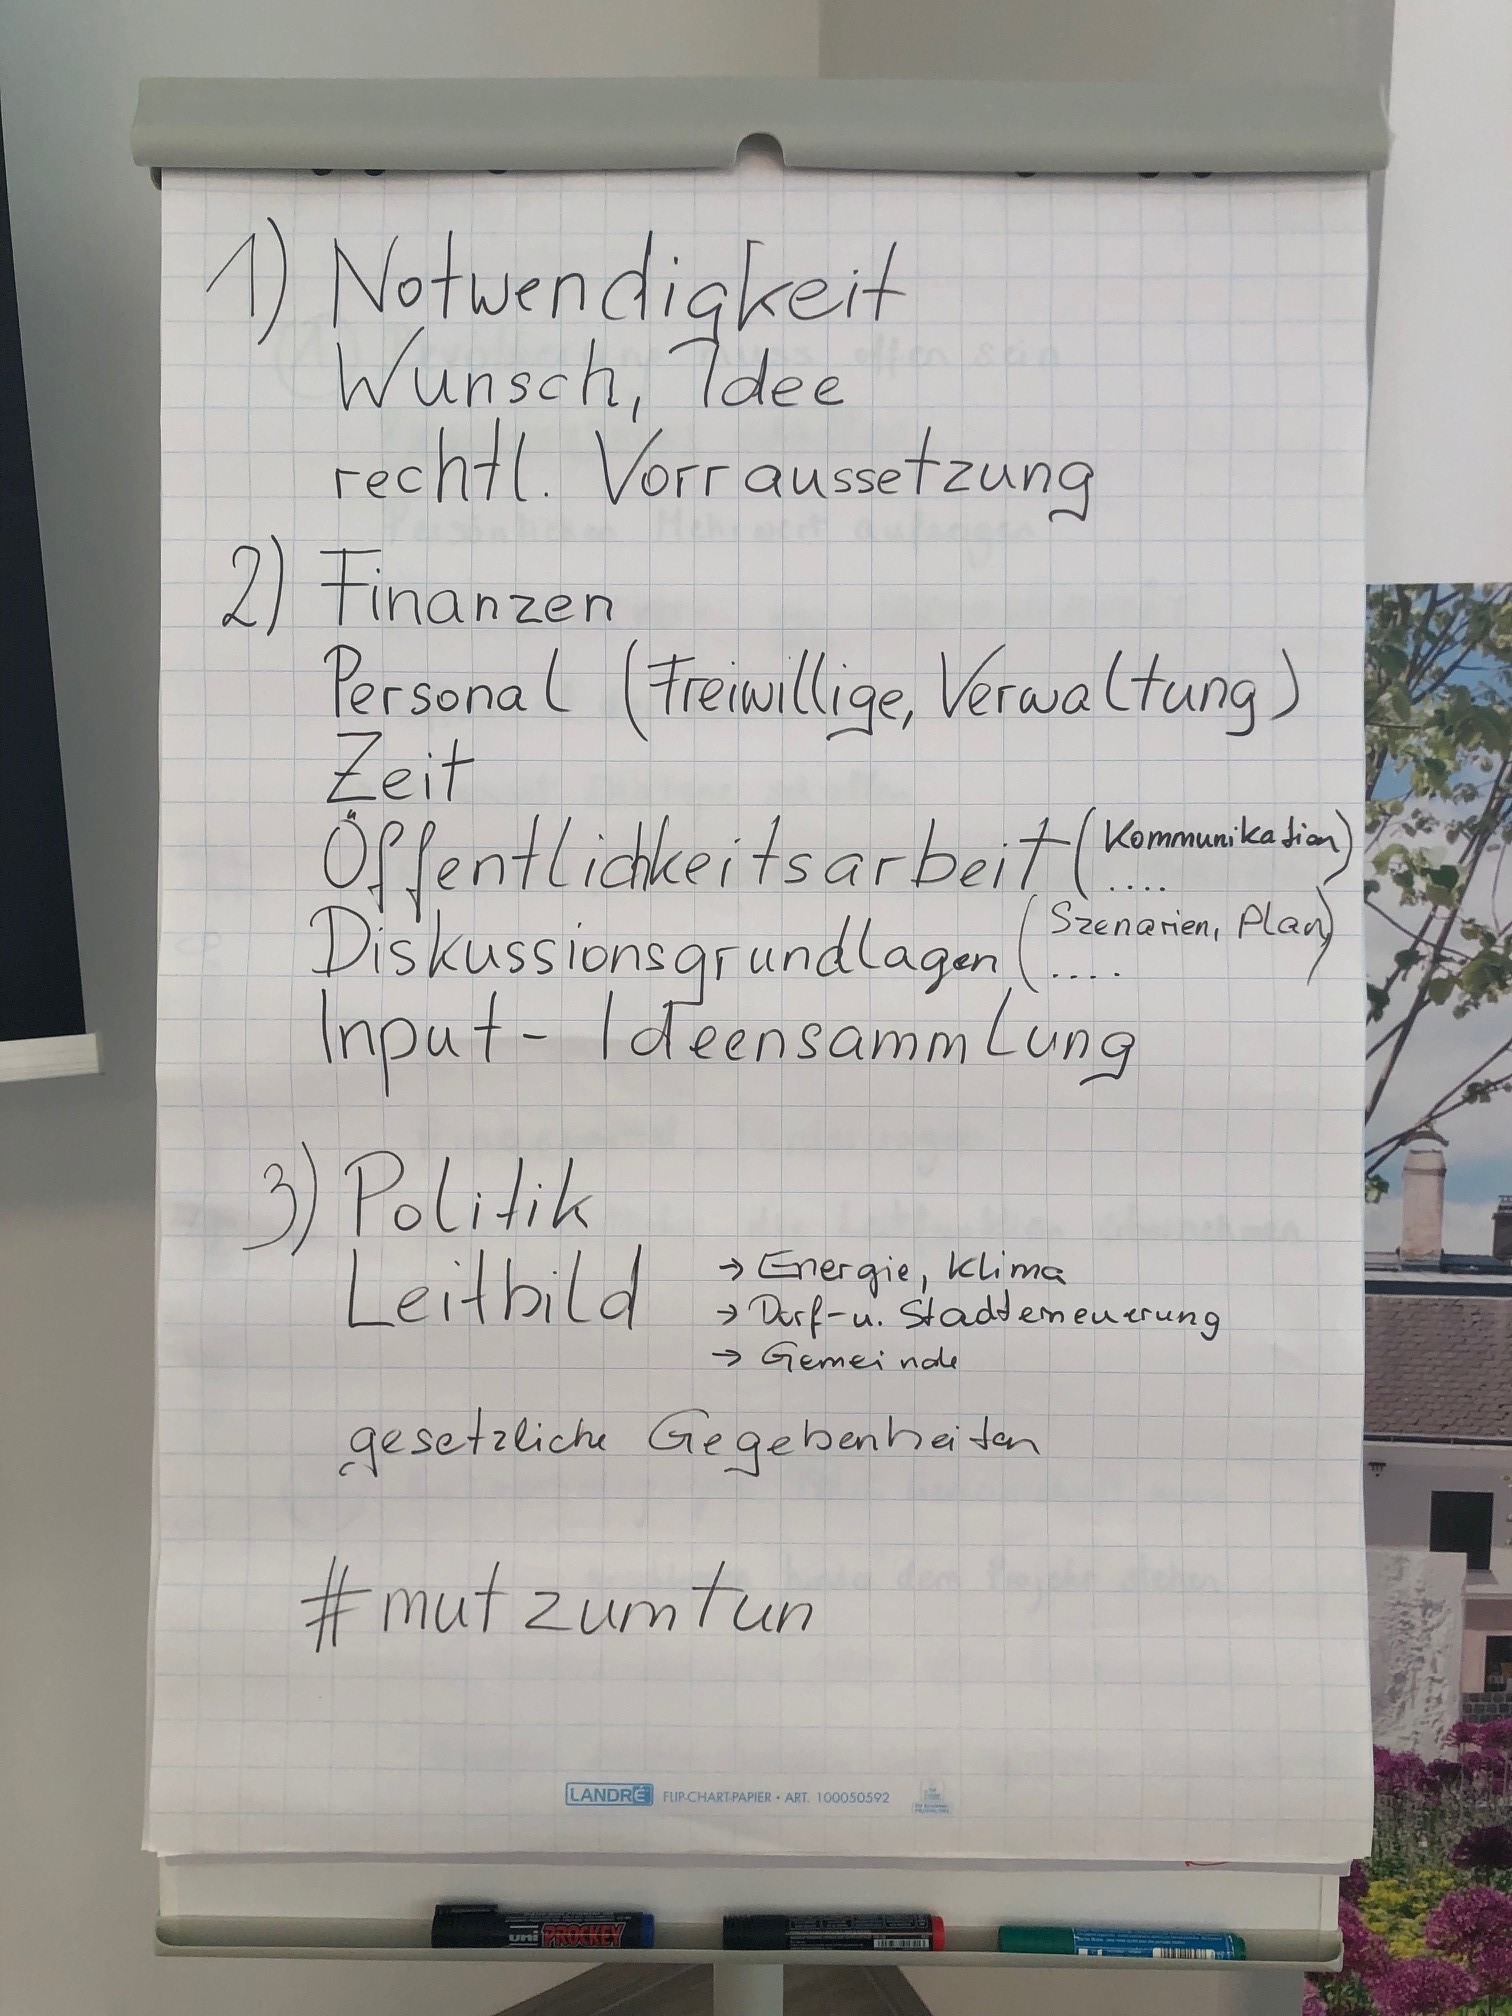 1) Notwendigkeit
Wunsch, Idee
rechtl. Vorraussetzung
2) Finanzen
Personal (Freiwillige, Verwaltung)
Zeit
Öffentlichkeitsarbeit (Kommunikation)
....
Diskussionsgrundlagen (Szenarien, Plan)
....
Input - Ideensammlung
3) Politik
Leitbild → Energie, Klima
→ Dorf- u. Stadterneuerung
→ Gemeinde
gesetzliche Gegebenheiten
#mutzumtun
LANDRÉ FLIP-CHART-PAPIER • ART. 100050592
uni PROCKEY